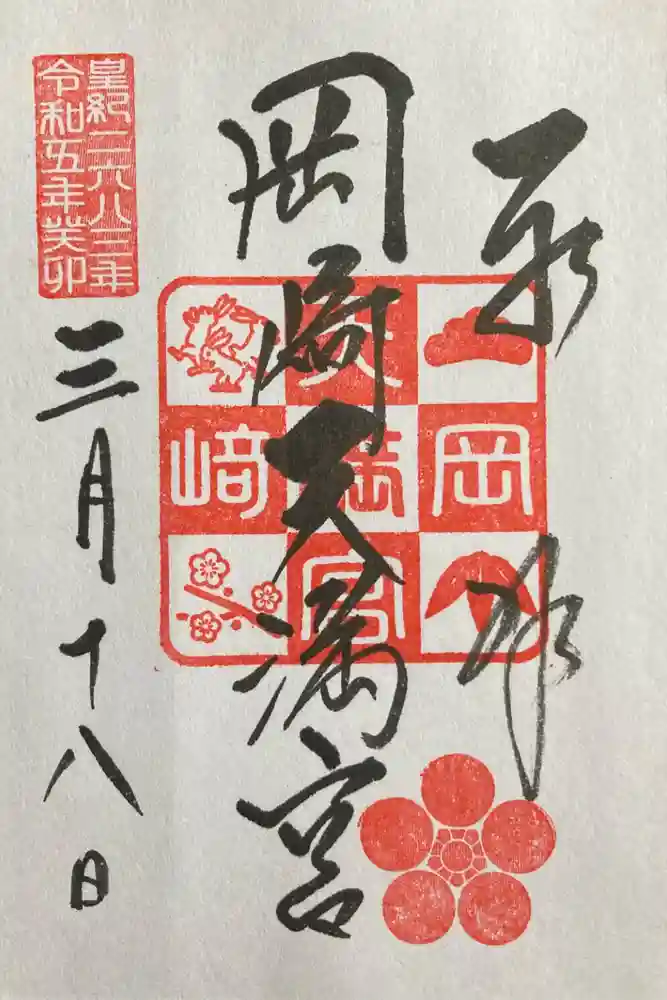 岡﨑天満宮
皇紀二六八三年
令和五年癸卯
三月十八日
岡﨑
天満宮